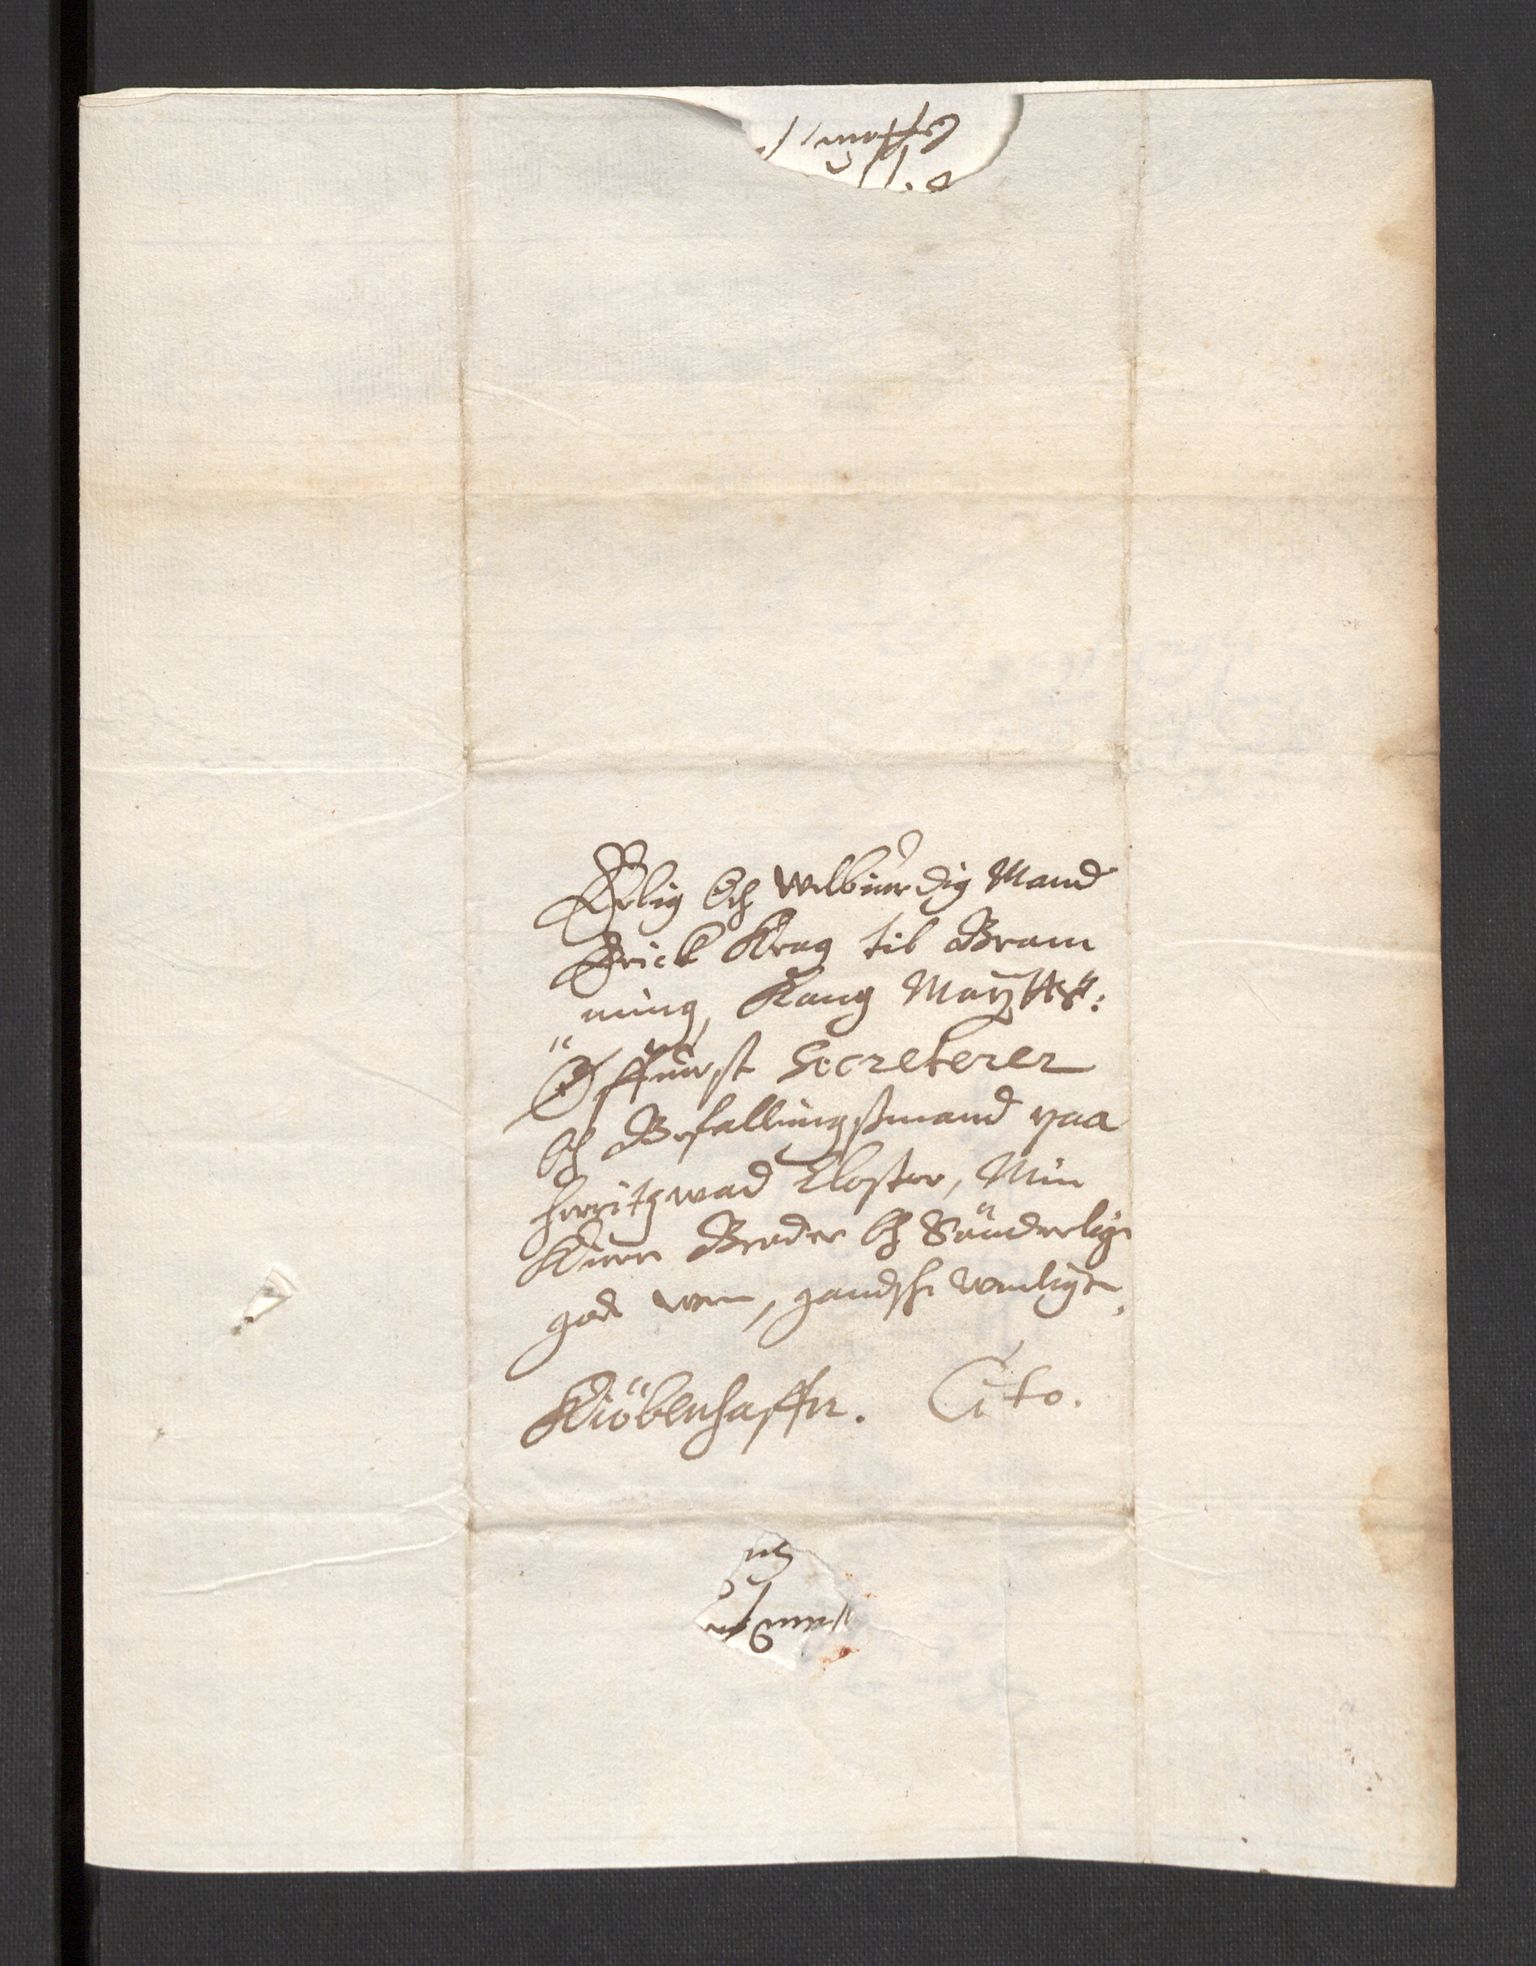 Erlig Och Welbiurdig Mand
Erick Krag til Bram
"ning, Kong Maÿtts:
Öffuerst Secreterer
och Befallingsmand paa
Herritzwad Closter, Min
Kiere Broder och Sönderlige
gode ven, gandske venligen.
Kiöbenhaffn. Cito.